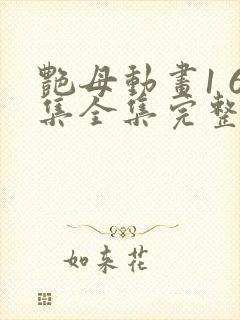 艷母動畫16
集全集完整
如来花